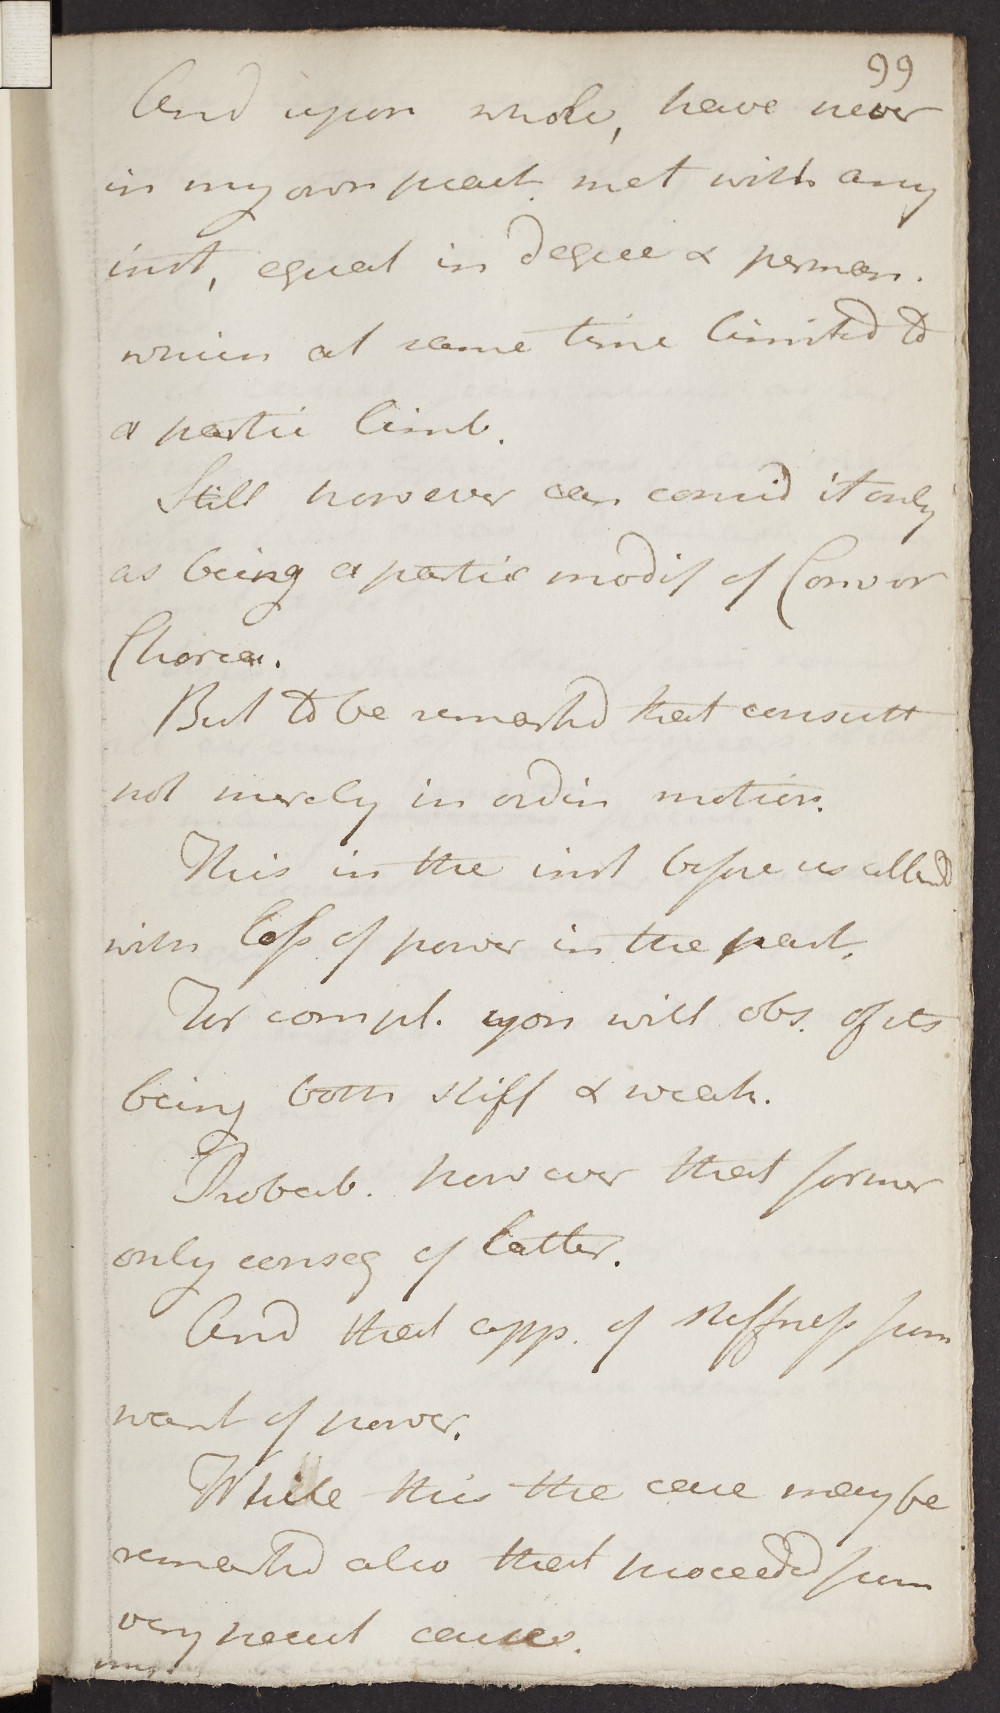 99
And upon whole, have never
in my own pract. met with any
inst, equal in degree & perman.
which at same time limited to
a partic limb.
Still however can consid it only
as being a partic modif of Conv or
Chorea.
But to be remarkd that consistt
not merely in ordin motion.
This in the inst before us attend
with loss of power in the part.
Her compl. upon will obs. of its
being both stiff & weak.
Probab. however that former
only conseq of latter.
And that app. of stiffness from
want of power.
While this the case may be
remarkd also that proceeded from
very peculi causes.